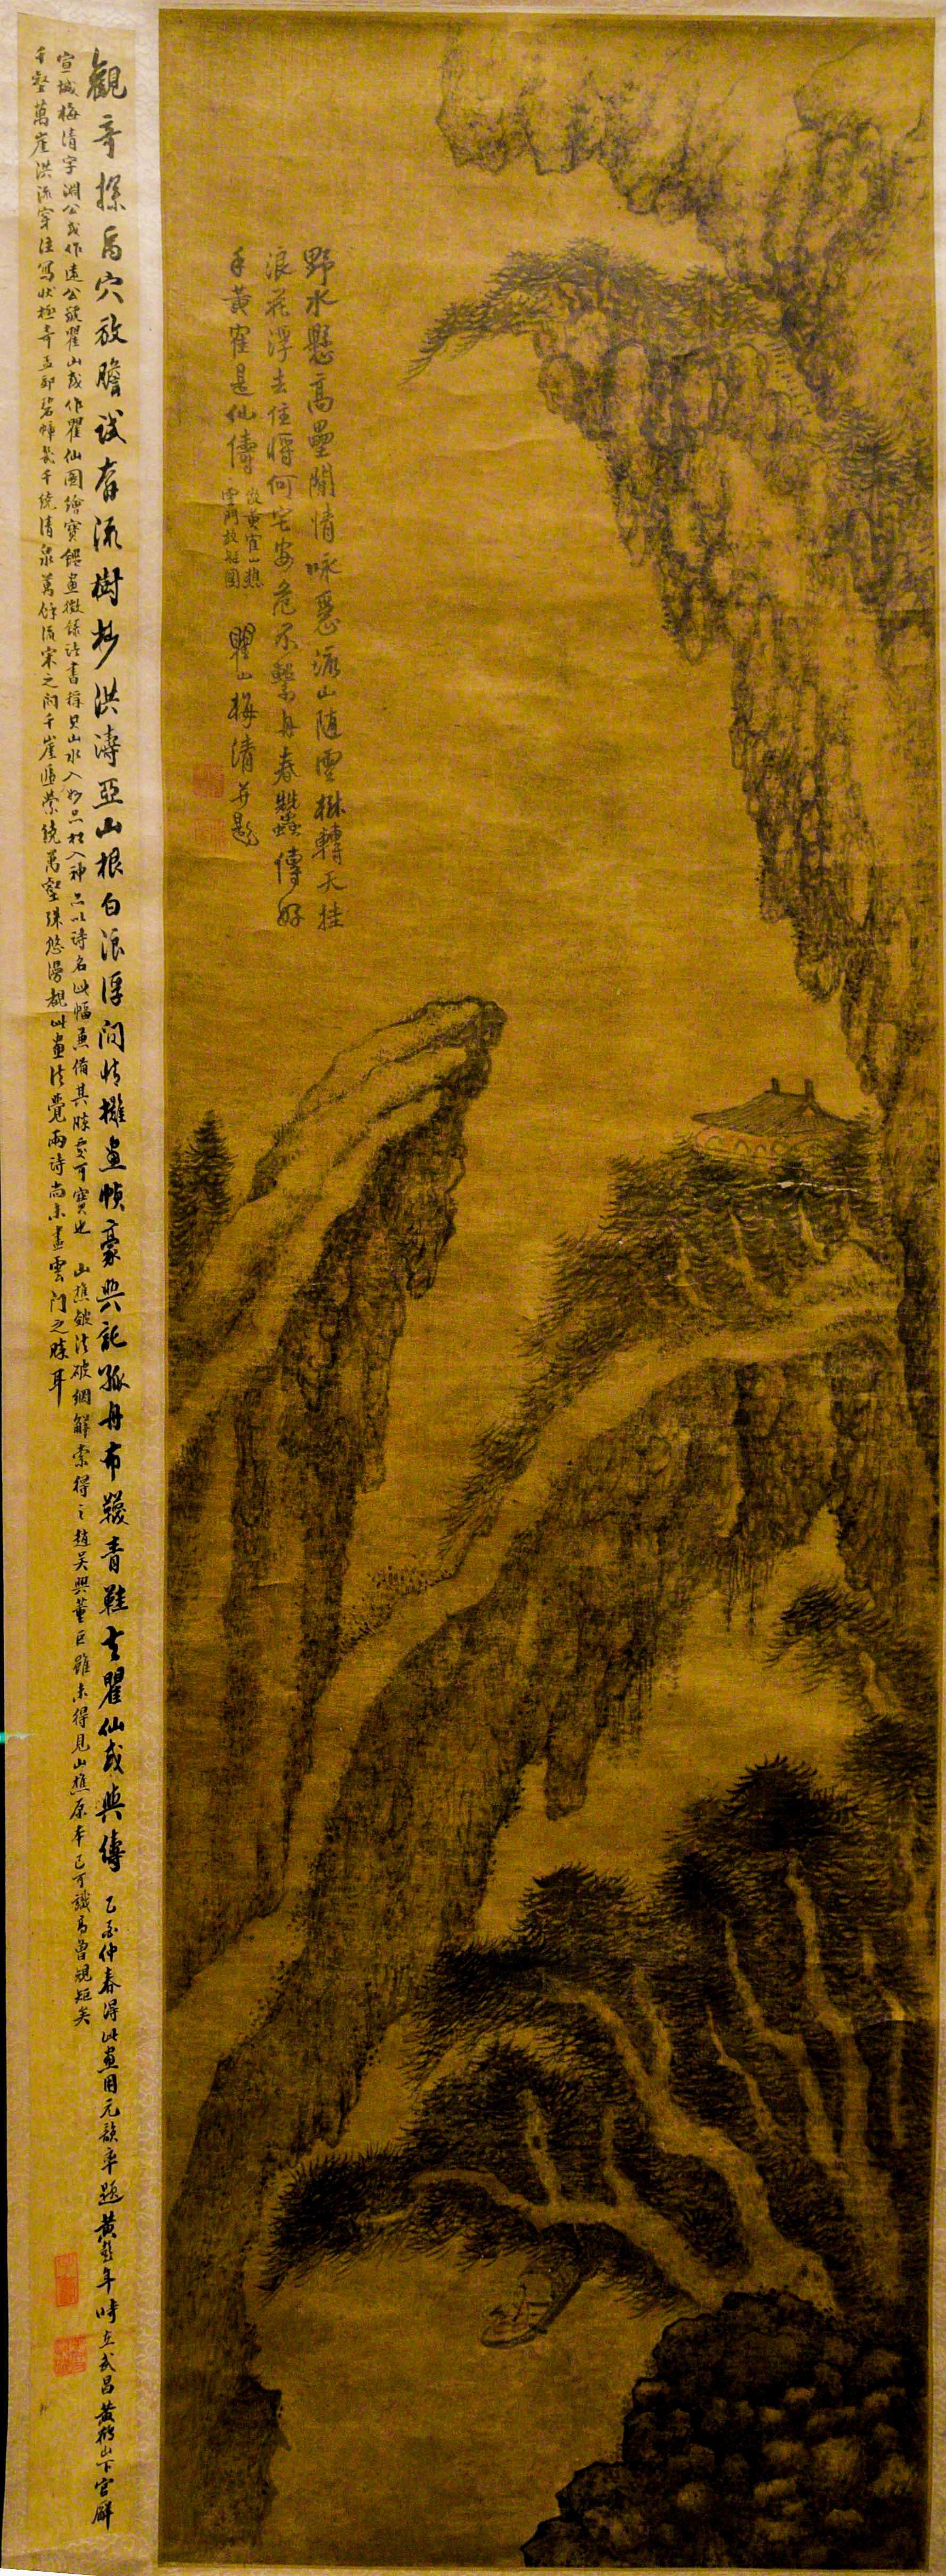 野水懸高壘閒情咏惡流山隨雲樹轉天挂
浪花浮去住將何宅安危不繫舟春蠶傳好
手黃隺是仙儔
仿黃隺山樵
雲門放艇圖
瞿山梅清并題
觀奇探禹穴放膽試奔流樹杪洪濤亞山根白浪浮閒情攤畫幀豪興託孤舟布韈青鞋去瞿仙或與儔 乙酉仲春得此畫用元韻率題黃彭年時在武昌黃鶴山下官廨
宣城梅清字淵公或作遠公號瞿山或作瞿仙圖繪寶鑑畫徵錄諸書稱其山水入妙品松入神品以詩名此幅兼備其勝爰可寶也 山樵皴法破網解索得之趙吳興董巨雖未得見山樵原本已可識高曾規矩矣
千壑萬崖洪流穿注寫狀極奇孟郊碧嶂幾千繞清泉萬餘流宋之問千崖迥縈繞萬壑殊悠漫觀此畫法覺兩詩尚未盡雲門之勝耳